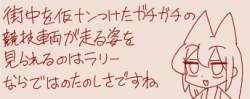 街中を仮ナンつけたガチガチの
競技車両が走る姿を
見られるのはラリー
ならではのたのしさですね